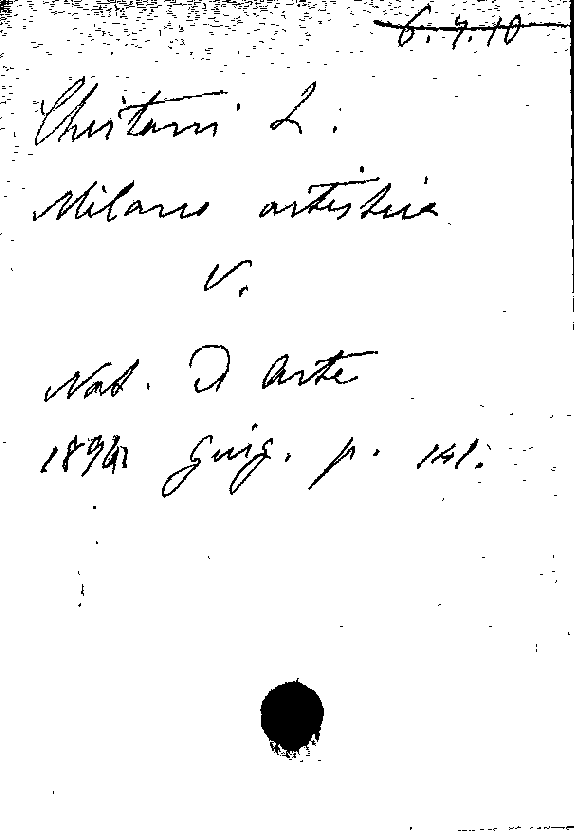 6.7.10
Chirtani L.
Milano artistica
V.
Nat. D Arte
189 Giug. p. 141.